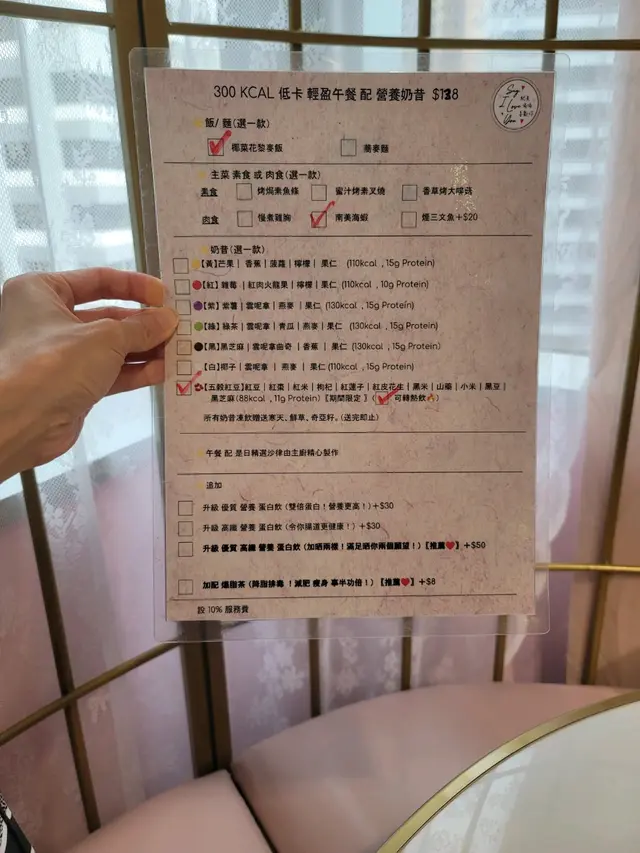 300 KCAL 低卡 輕盈午餐 配 營養奶昔 $138
Say I Love You
飯/ 麵(選一款)
椰菜花黎麥飯 蕎麥麵
主菜 素食 或 肉食(選一款)
素食 烤焗素魚條 蜜汁烤素叉燒 香草烤大啡菇
肉食 慢煮雞胸 南美海蝦 煙三文魚+$20
奶昔(選一款)
【黃】芒果 | 香蕉 | 菠蘿 | 檸檬 | 果仁 (110kcal , 15g Protein)
【紅】雜莓 | 紅肉火龍果 | 檸檬 | 果仁 (110kcal , 10g Protein)
【紫】紫薯 | 雲呢拿 | 燕麥 | 果仁 (130kcal , 15g Protein)
【綠】綠茶 | 雲呢拿 | 青瓜 | 燕麥 | 果仁 (130kcal , 15g Protein)
【黑】黑芝麻 | 雲呢拿曲奇 | 香蕉 | 果仁 (130kcal , 15g Protein)
【白】椰子 | 雲呢拿 | 燕麥 | 果仁 (110kcal , 15g Protein)
【五穀紅豆】紅豆 | 紅棗 | 紅米 | 枸杞 | 紅蓮子 | 紅皮花生 | 黑米 | 山藥 | 小米 | 黑豆 |
黑芝麻 (88kcal , 11g Protein)【期間限定】( 可轉熱飲🔥)
所有奶昔凍飲贈送寒天、鮮草、奇亞籽。(送完即止)
午餐 配 是日精選沙律由主廚精心製作
追加
升級 優質 營養 蛋白飲 (雙倍蛋白！營養更高！) +$30
升級 高纖 營養 蛋白飲 (令你腸道更健康！) +$30
升級 優質 高纖 營養 蛋白飲 (加晒兩樣！滿足晒你兩個願望！)【推薦❤️】+$50
加配 爆脂茶 (降脂排毒 ！減肥 瘦身 事半功倍！)【推薦❤️】+$8
設 10% 服務費